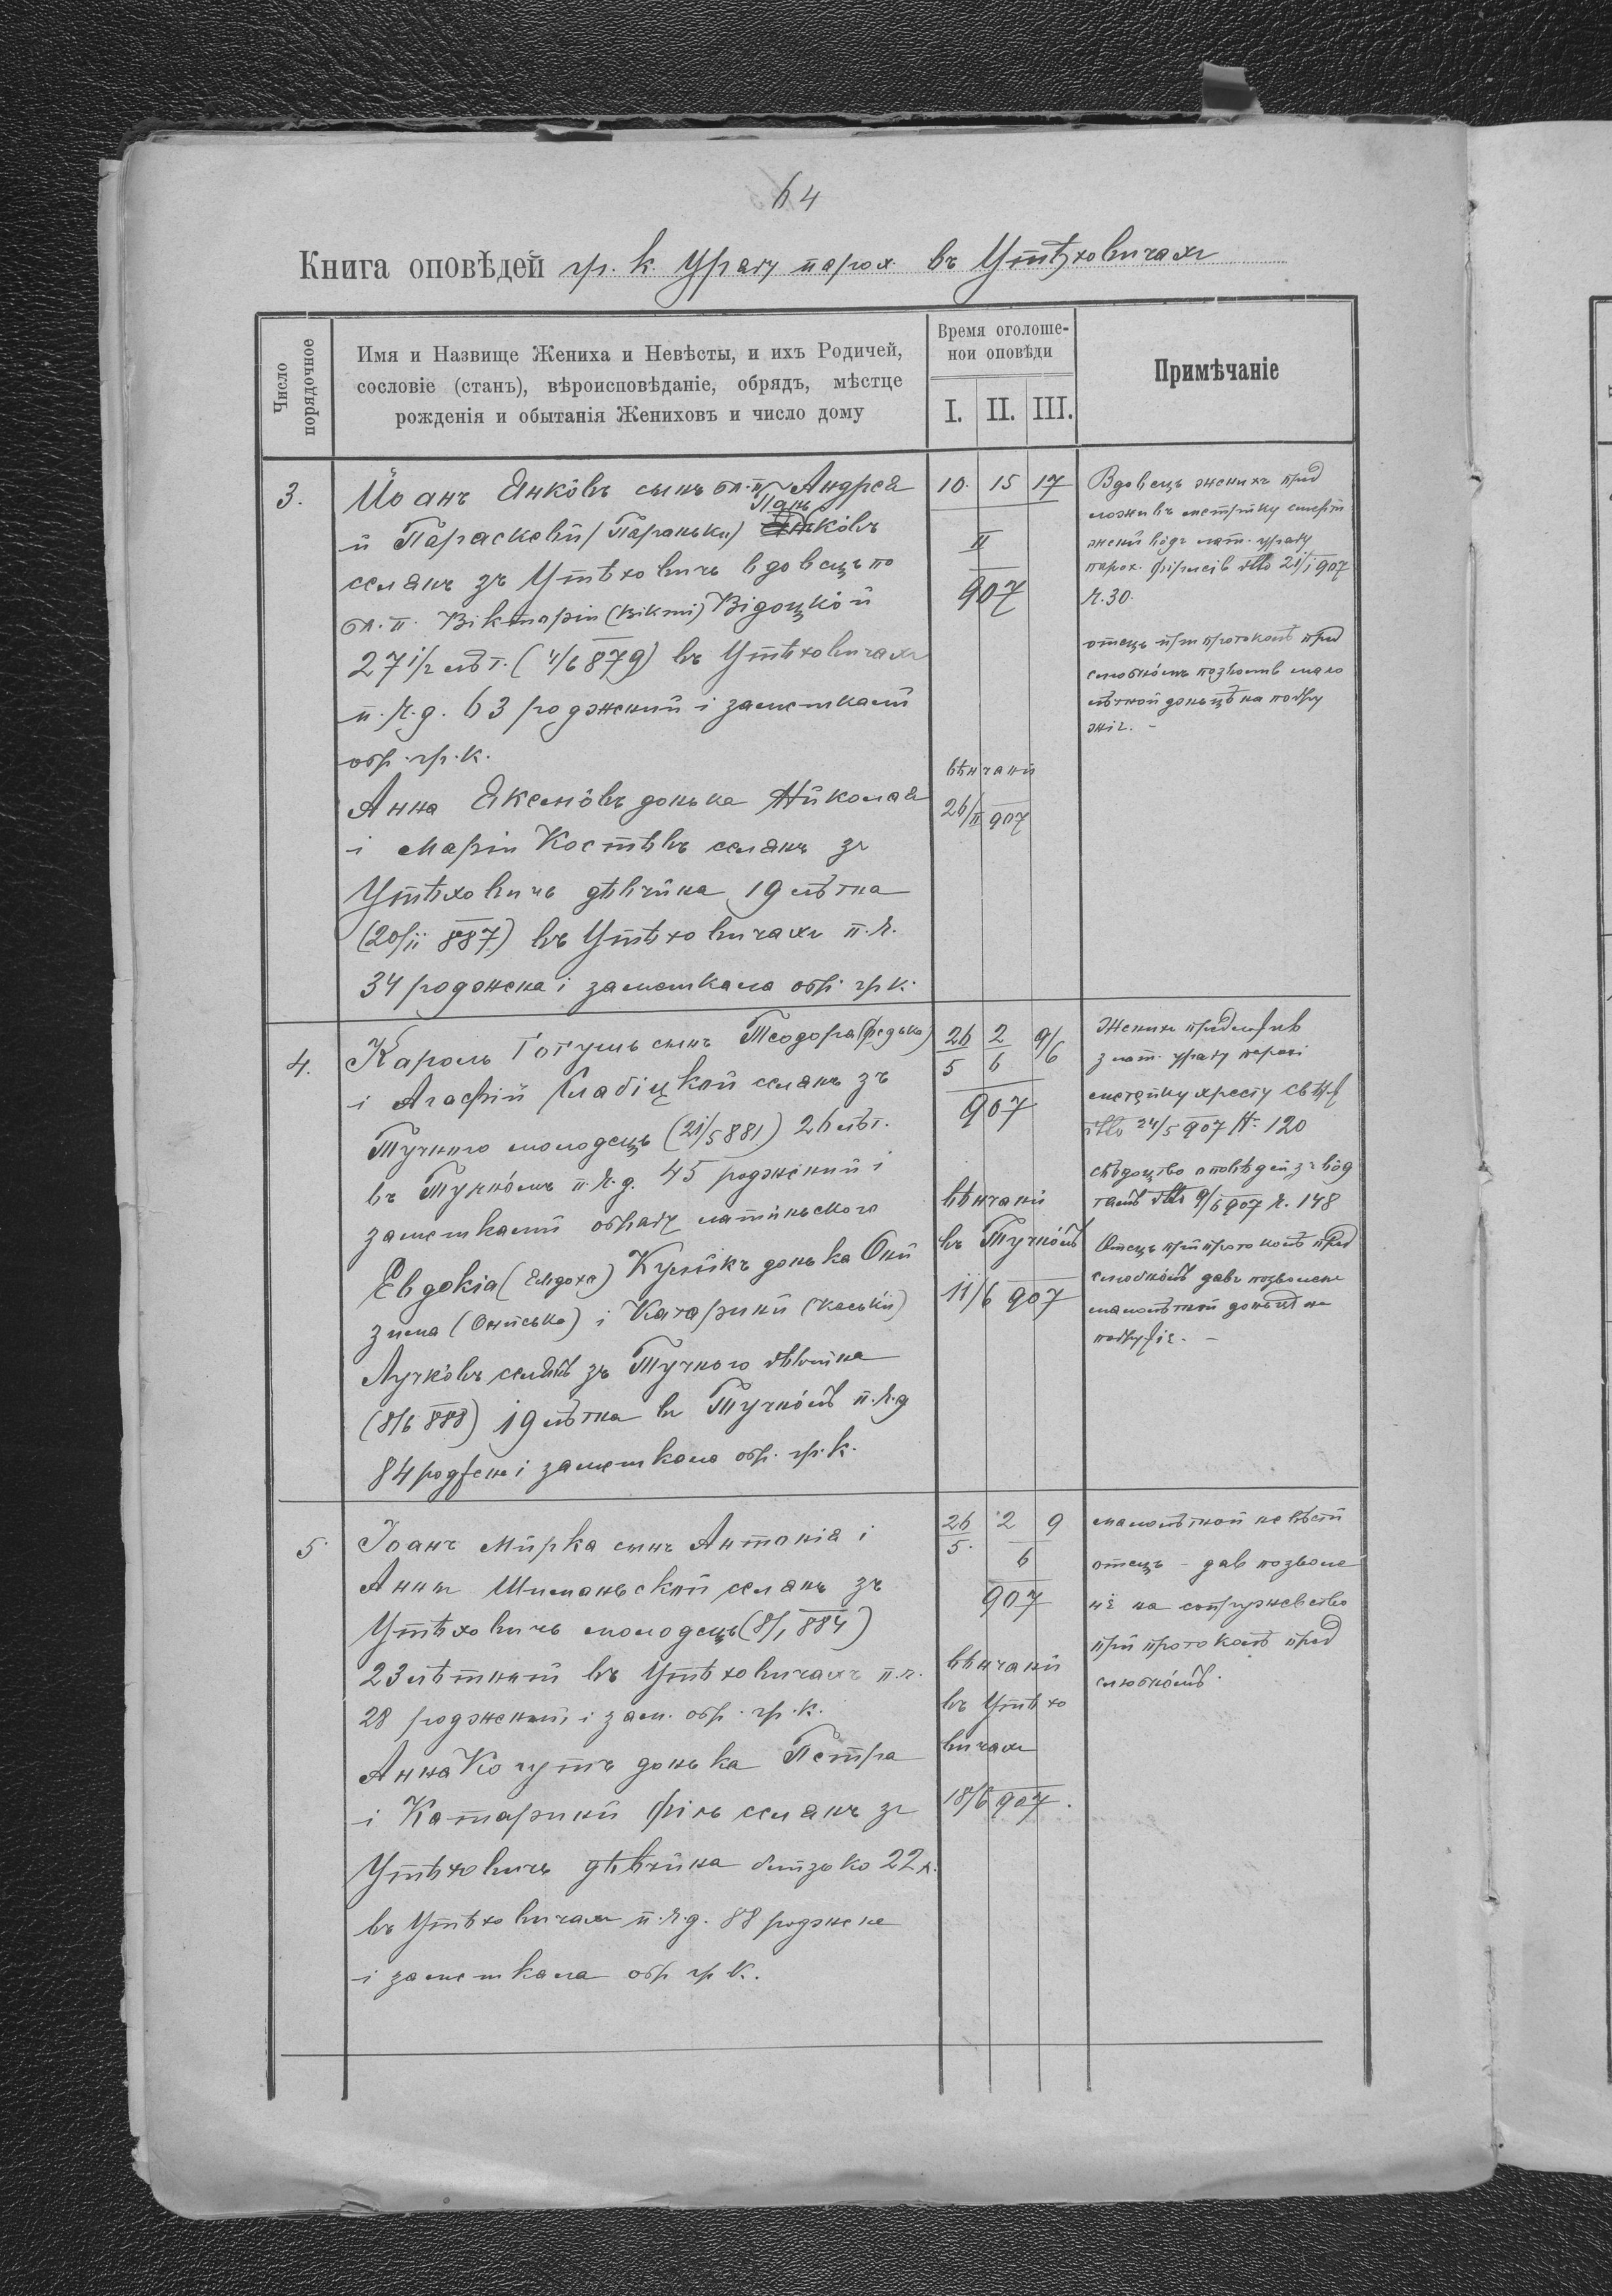 64
Книга оповѣдей гр. к. Уряду парох. въ Утѣховичахъ
Число порядочное
Имя и Назвище Жениха и Невѣсты, и ихъ Родичей,
сословіе (станъ), вѣроисповѣданіе, обрядъ, мѣстце
рожденія и обытанія Жениховъ и число дому
Время оголоше-
нои оповѣди
I. II. III.
Примѣчаніе
3.
Йоанъ Янкôвъ сынъ бл. п. Андрея
и Параскевіи (Параньки)
селянъ зъ Утѣховичъ вдовецъ по
бл. п. Вікторіи (Вікти) Відоцкôй
27 1/2 лѣт. (4/6 879) въ Утѣховичахъ
п. ч. д. 63 родженый і замешкалый
обр. гр. к.
Анна Яксмôвъ донька Николая
і Маріи Костѣвъ селянъ зъ
Утѣховичъ дѣвчина 19 лѣтна
(20/ii 887) въ Утѣховичахъ п. ч.
34 роджена і замешкала обр. гр. к.
10. 15 17
II
907
вѣнчаніи
26/II 907
Вдовецъ женихъ пред
ложивъ метрику смерти
жены вôдъ лат. уряду
парох. ddto 21/1 907
ч. 30.
отецъ при протоколѣ пред
слюбнôмъ позволив мало
лѣтной доньцѣ на подру
жіє. -
4.
Кароль Ґоґуль сынъ Теодора (Федька)
і Агафіи Слабіцкой селянъ зъ
Тучного молодецъ (21/5 881) 26 лѣт.
въ Тучнôмъ п. ч. д. 45 родженый і
замешкалый обряду латиньского
Евдокія (Евдоха) Куликъ донька Они
зима (Ониська) і Катарины (Каськи)
Лучкôвъ селянъ зъ Тучного дѣвчина
(8/6 888) 19 лѣтна въ Тучнôмъ п. ч. д.
84 роджена і замешкала обр. гр. к.
26 2 9/6
5 6
907
вѣнчаніи
въ Тучнôмъ
11/6 907
Женихъ предложив
з лат. уряду парохі
метрику хресту
ddto 24/5 907 N. 120
свѣдоцтво оповѣдей зъ вôд
тамъ ddto 9/6 907 ч. 148
Отецъ при протоколѣ пред
слюбнôмъ давъ позволенє
малолѣтной доньцѣ на
подружіє. -
5.
Іоанъ Мирка сынъ Антонія і
Анны Шиманьской селянъ зъ
Утѣховичъ молодецъ (8/1 884)
23 лѣтный въ Утѣховичахъ п. ч.
28 родженый і зам. обр. гр. к.
Анна Когутъ донька Петра
і Катарины Філь селянъ зъ
Утѣховичъ дѣвчина близько 22 л.
въ Утѣховичахъ п. ч. д. 88 роджена
і замешкала обр. гр. к.
26 2 9
5. 6
907
вѣнчаніи
въ Утѣхо
вичахъ
18/6 907.
малолѣтной невѣсты
отецъ - дав позволе
нє на сопружество
при протоколѣ пред
слюбнôмъ.